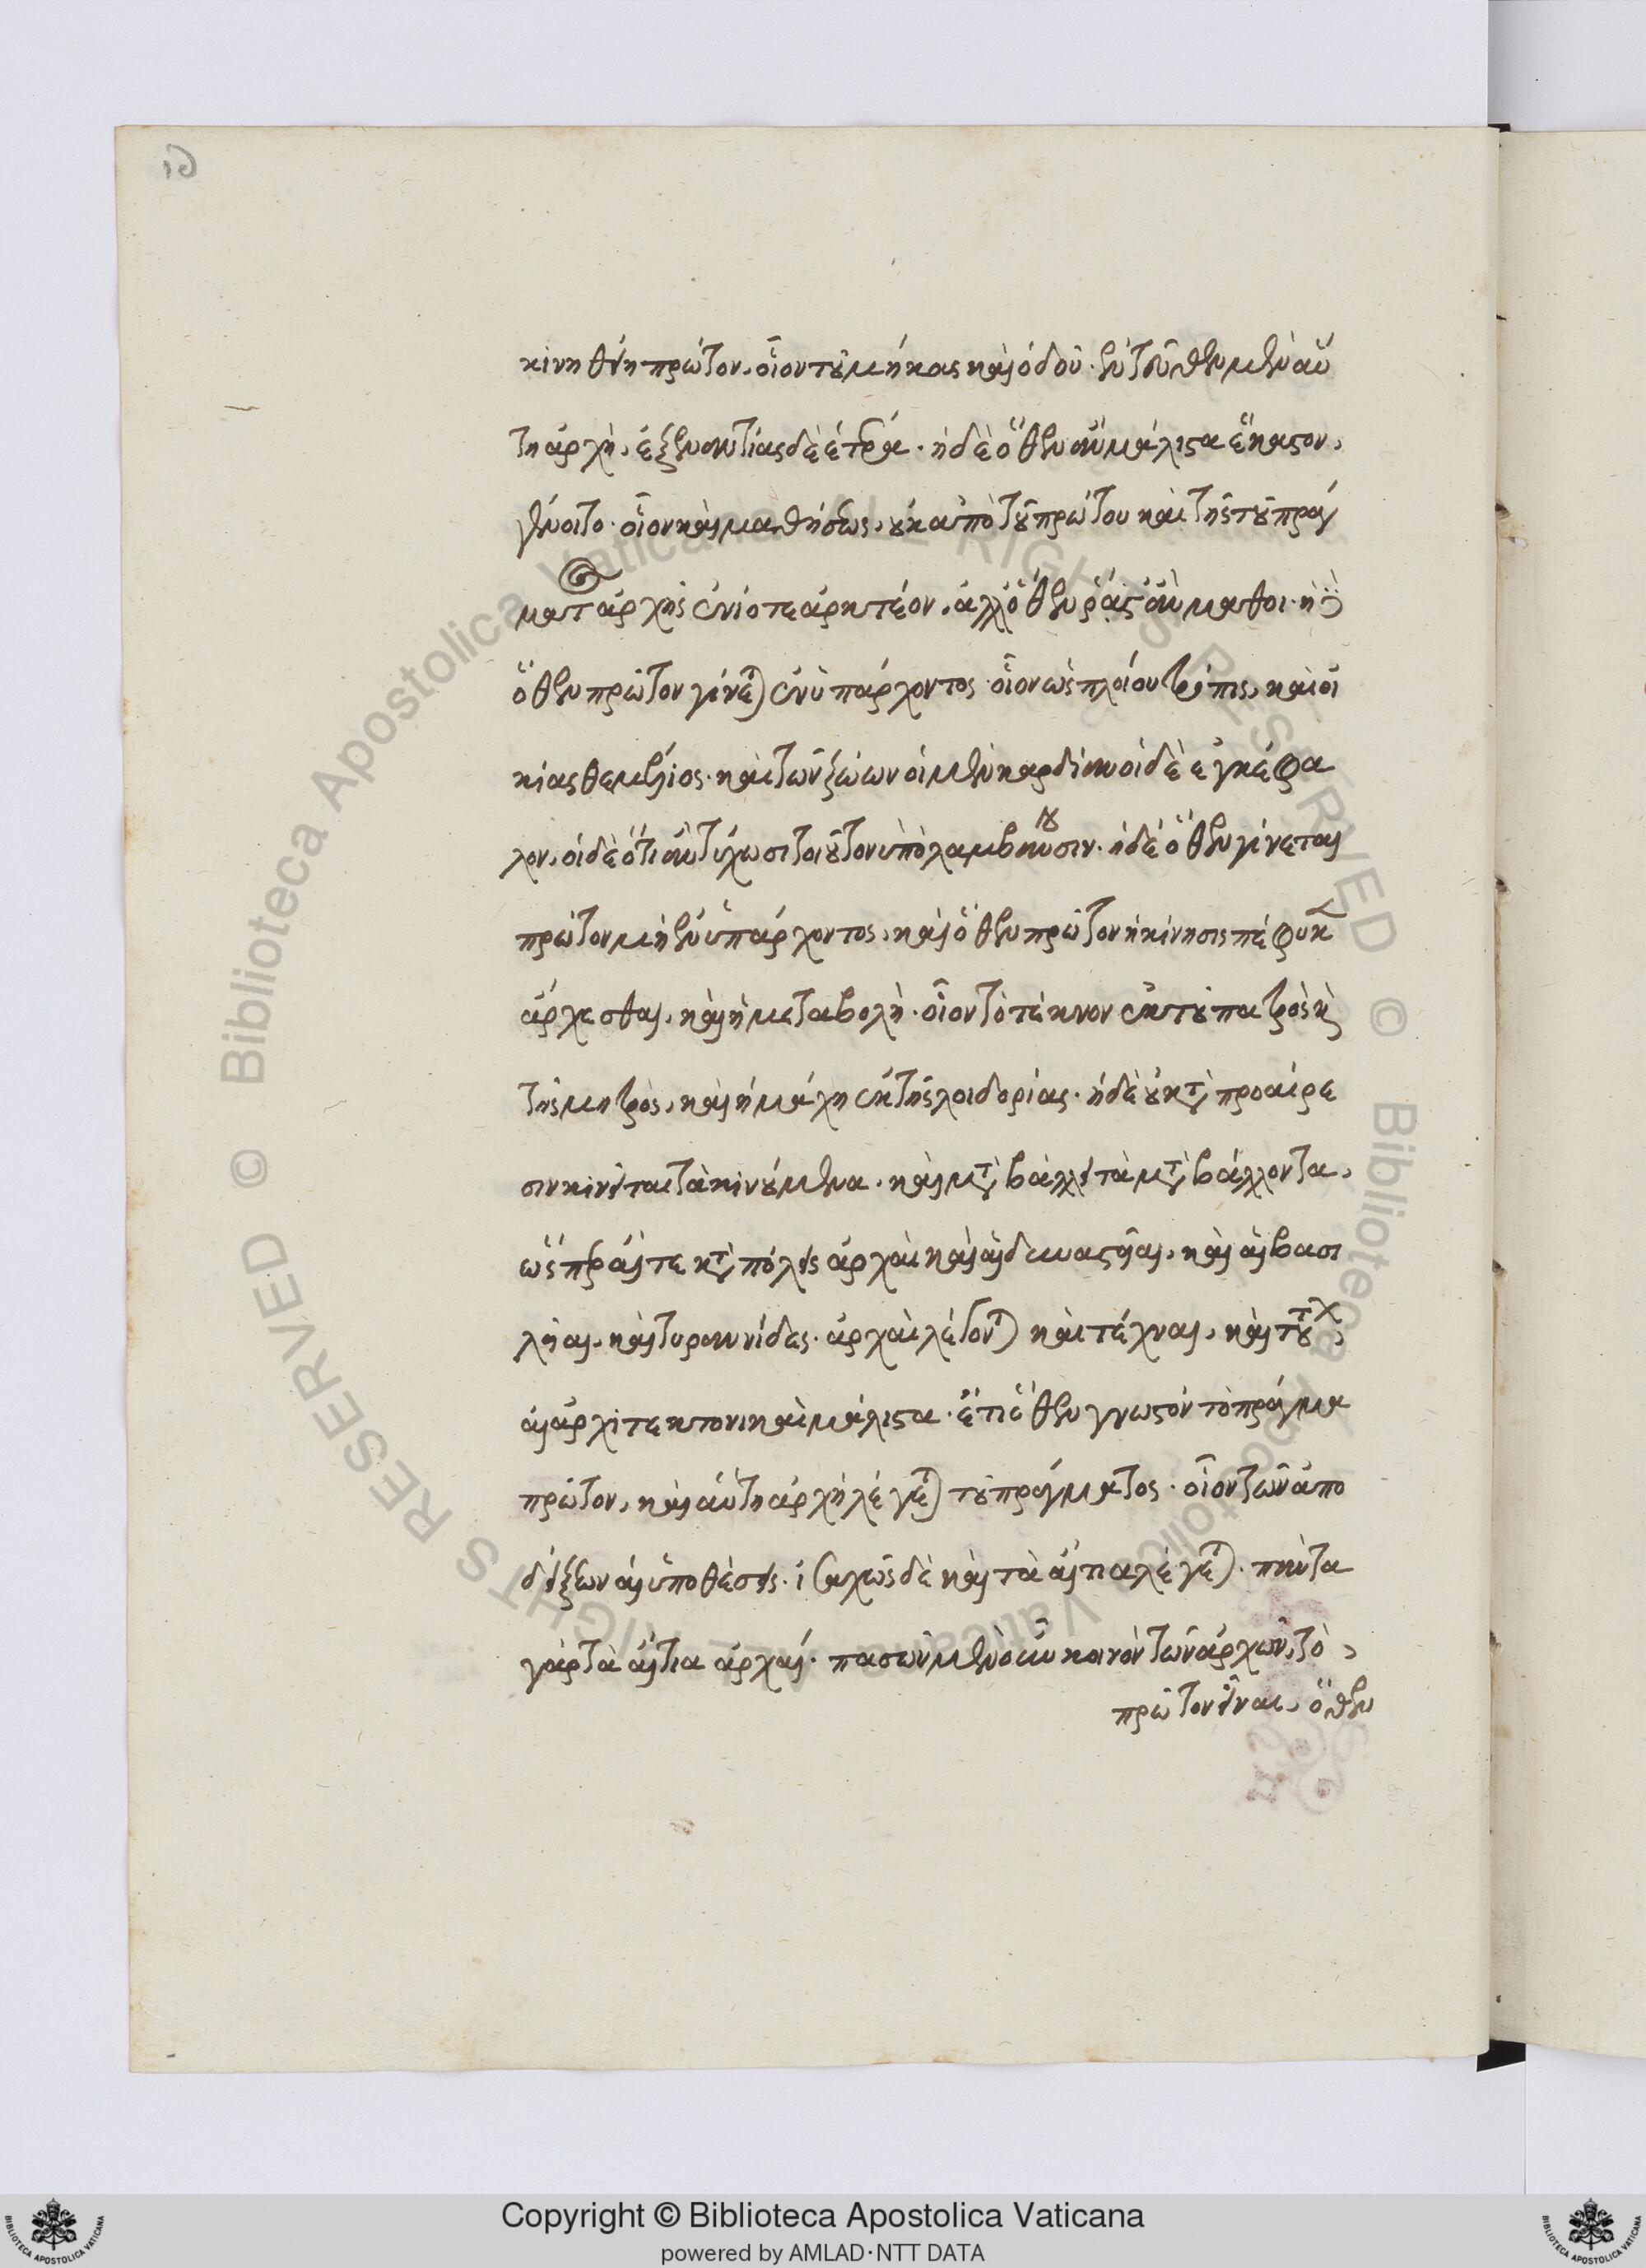 κινηθείη πρώτον, οἷον τοῦ μήκους καὶ ὁδοῦ· ἐντεῦθεν μὲν αὕ
τη ἀρχὴ, ἐξ ἐναντίας δὲ ἑτέρα· ἡ δὲ ὅθεν ἂν μάλιστα ἕκαστον,
γένοιτο· οἷον καὶ μαθήσεως, οὐκ ἀπὸ τοῦ πρώτου καὶ τῆς τοῦ πράγ
ματος ἀρχῆς ἐνίοτε ἀρκτέον, ἀλλ' ὅθεν ῥᾷστ' ἂν μάθοι· ἡ δὲ
ὅθεν πρῶτον γίνεται ἐνυπάρχοντος· οἷον ὡς πλοίου τρόπις, καὶ οἰ
κίας θεμέλιος· καὶ τῶν ζώων οἱ μὲν καρδίαν οἱ δὲ ἐγκέφα
λον, οἱ δὲ ὅ τι ἂν τύχωσι τοιοῦτον ὑπολαμβάνουσιν· ἡ δὲ ὅθεν γίνεται
πρῶτον μὴ ἐνυπάρχοντος, καὶ ὅθεν πρῶτον ἡ κίνησις πέφυκεν
ἄρχεσθαι, καὶ ἡ μεταβολὴ· οἷον τὸ τέκνον ἐκ τοῦ πατρὸς καὶ
τῆς μητρὸς, καὶ ἡ μάχη ἐκ τῆς λοιδορίας· ἡ δὲ οὗ κατὰ προαίρε
σιν κινεῖται τὰ κινούμενα, καὶ μεταβάλλει τὰ μεταβάλλοντα,
ὥσπερ αἵ τε κατὰ πόλεις ἀρχαὶ καὶ αἱ δυναστεῖαι, καὶ αἱ βασι
λεῖαι, καὶ τυραννίδες· ἀρχαὶ λέγονται καὶ τέχναι, καὶ τούτων,
αἱ ἀρχιτεκτονικαὶ μάλιστα· ἔτι ὅθεν γνωστόν τὸ πράγμα
πρῶτον, καὶ αὕτη ἀρχὴ λέγεται τοῦ πράγματος· οἷον τῶν ἀπο
δείξεων αἱ ὑποθέσεις· ἰσαχῶς δὲ καὶ τὰ αἴτια λέγεται· πάντα
γὰρ τὰ αἴτια ἀρχαί· πασῶν μὲν οὖν κοινὸν τῶν ἀρχῶν, τὸ,
πρῶτον εἶναι, ὅθεν
Copyright © Biblioteca Apostolica Vaticana
powered by AMLAD·NTT DATA